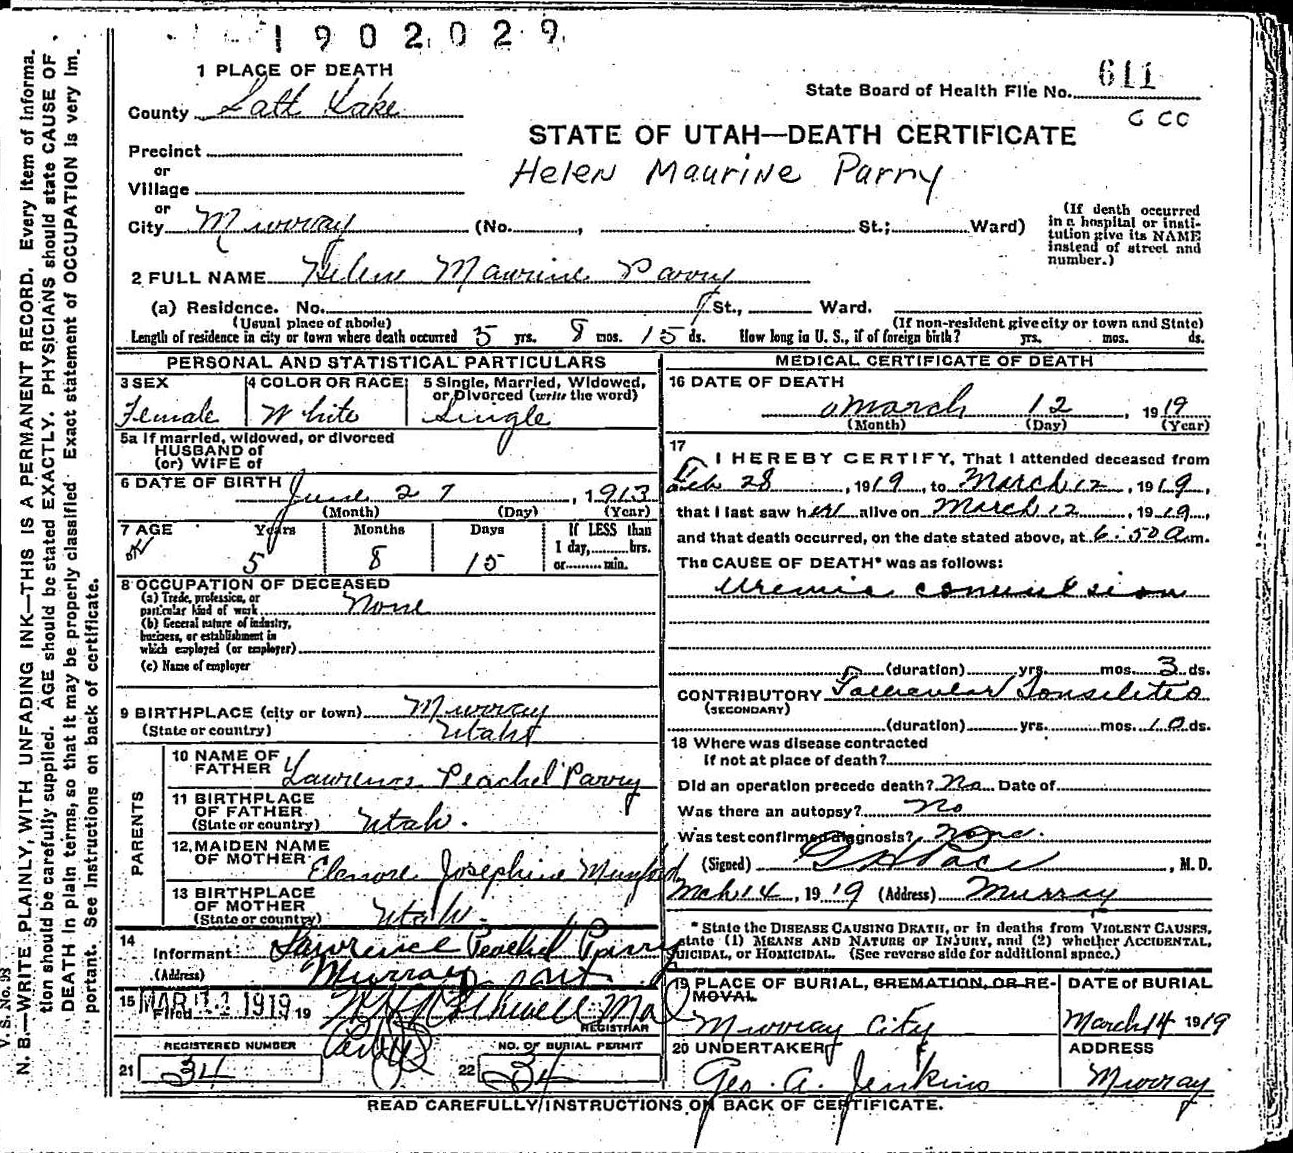 1902029
1 PLACE OF DEATH
County Salt Lake
State Board of Health File No. 611
G CC
STATE OF UTAH—DEATH CERTIFICATE
Helen Maurine Parry
Precinct
or
Village
or
City Murray (No. , St.; Ward)
(If death occurred in a hospital or institution give its NAME instead of street and number.)
2 FULL NAME Helen Maurine Parry
(a) Residence. No. St., Ward.
(Usual place of abode) (If non-resident give city or town and State)
Length of residence in city or town where death occurred 5 yrs. 8 mos. 15 ds. How long in U. S., if of foreign birth? yrs. mos. ds.
PERSONAL AND STATISTICAL PARTICULARS
3 SEX Female
4 COLOR OR RACE White
5 Single, Married, Widowed, or Divorced (write the word) Single
5a If married, widowed, or divorced
HUSBAND of
(or) WIFE of
6 DATE OF BIRTH June 27, 1913
(Month) (Day) (Year)
7 AGE Years Months Days If LESS than
5 8 15 1 day, hrs.
or min.
8 OCCUPATION OF DECEASED
(a) Trade, profession, or
particular kind of work None
(b) General nature of industry,
business, or establishment in
which employed (or employer)
(c) Name of employer
9 BIRTHPLACE (city or town) Murray
(State or country) Utah
PARENTS
10 NAME OF FATHER Lawrence Peachel Parry
11 BIRTHPLACE OF FATHER (State or country) Utah.
12 MAIDEN NAME OF MOTHER Elenore Josephine Mumford
13 BIRTHPLACE OF MOTHER (State or country) Utah.
14
Informant Lawrence Peachel Parry
(Address) Murray Ut
15 Filed MAR 1919 19
REGISTRAR
REGISTERED NUMBER
21 34
NO. OF BURIAL PERMIT
22 34
MEDICAL CERTIFICATE OF DEATH
16 DATE OF DEATH
March 12, 1919
(Month) (Day) (Year)
17
I HEREBY CERTIFY, That I attended deceased from
Feb 28, 1919, to March 12, 1919,
that I last saw her alive on March 12, 1919,
and that death occurred, on the date stated above, at 6:50 a m.
The CAUSE OF DEATH* was as follows:
Uremic convulsion
(duration) yrs. mos. 3 ds.
CONTRIBUTORY Follicular Tonsilitis
(SECONDARY)
(duration) yrs. mos. 10 ds.
18 Where was disease contracted
If not at place of death?
Did an operation precede death? No Date of
Was there an autopsy? No
Was test confirmed diagnosis? None.
(Signed) G H Pace, M. D.
Mch 14, 1919 (Address) Murray
* State the DISEASE CAUSING DEATH, or in deaths from VIOLENT CAUSES,
state (1) MEANS AND NATURE OF INJURY, and (2) whether ACCIDENTAL,
SUICIDAL, or HOMICIDAL. (See reverse side for additional space.)
19 PLACE OF BURIAL, CREMATION, OR REMOVAL Murray City
DATE of BURIAL March 14 1919
20 UNDERTAKER Geo. A. Jenkins
ADDRESS Murray
READ CAREFULLY INSTRUCTIONS ON BACK OF CERTIFICATE.
V. S. No. 98
N. B.—WRITE PLAINLY, WITH UNFADING INK—THIS IS A PERMANENT RECORD. Every item of informa-
tion should be carefully supplied. AGE should be stated EXACTLY. PHYSICIANS should state CAUSE OF
DEATH in plain terms, so that it may be properly classified. Exact statement of OCCUPATION is very im-
portant. See instructions on back of certificate.